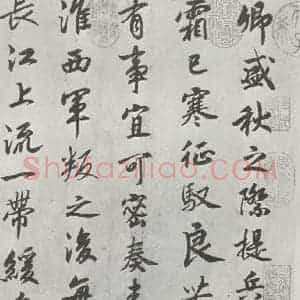 卿盛秋之際提兵
霜已寒征馭良苦
有事宜可密奏来
淮西軍叛之後每
長江上流一帶緩急
Shufaziliao.com